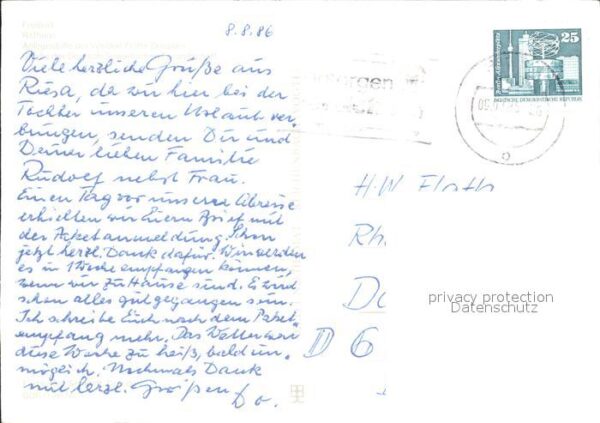 8.8.86
Freiberg
Viele herzliche Grüße aus
Riesa, da wir hier bei der
Tochter unseren Urlaub ver-
bringen, senden Dir und
Deiner lieben Familie
Rudolf nebst Frau.
Einen Tag vor unserer Abreise
erhielten wir Euern Brief mit
der Paketanmeldung. Schon
jetzt herzl. Dank dafür. Wir werden
es in 1 Woche empfangen können,
wenn wir zu Hause sind. Es wird
schon alles gut gegangen sein.
Ich schreibe Euch nach dem Paket-
empfang mehr. Das Wetter war
diese Woche zu heiß, bald un-
möglich. Nochmals Dank
mit herzl. Grüßen
D o.
25
Berlin, Alexanderplatz
DEUTSCHE DEMOKRATISCHE REPUBLIK
H.W.
Rh
D
privacy protection
Datenschutz
D 6